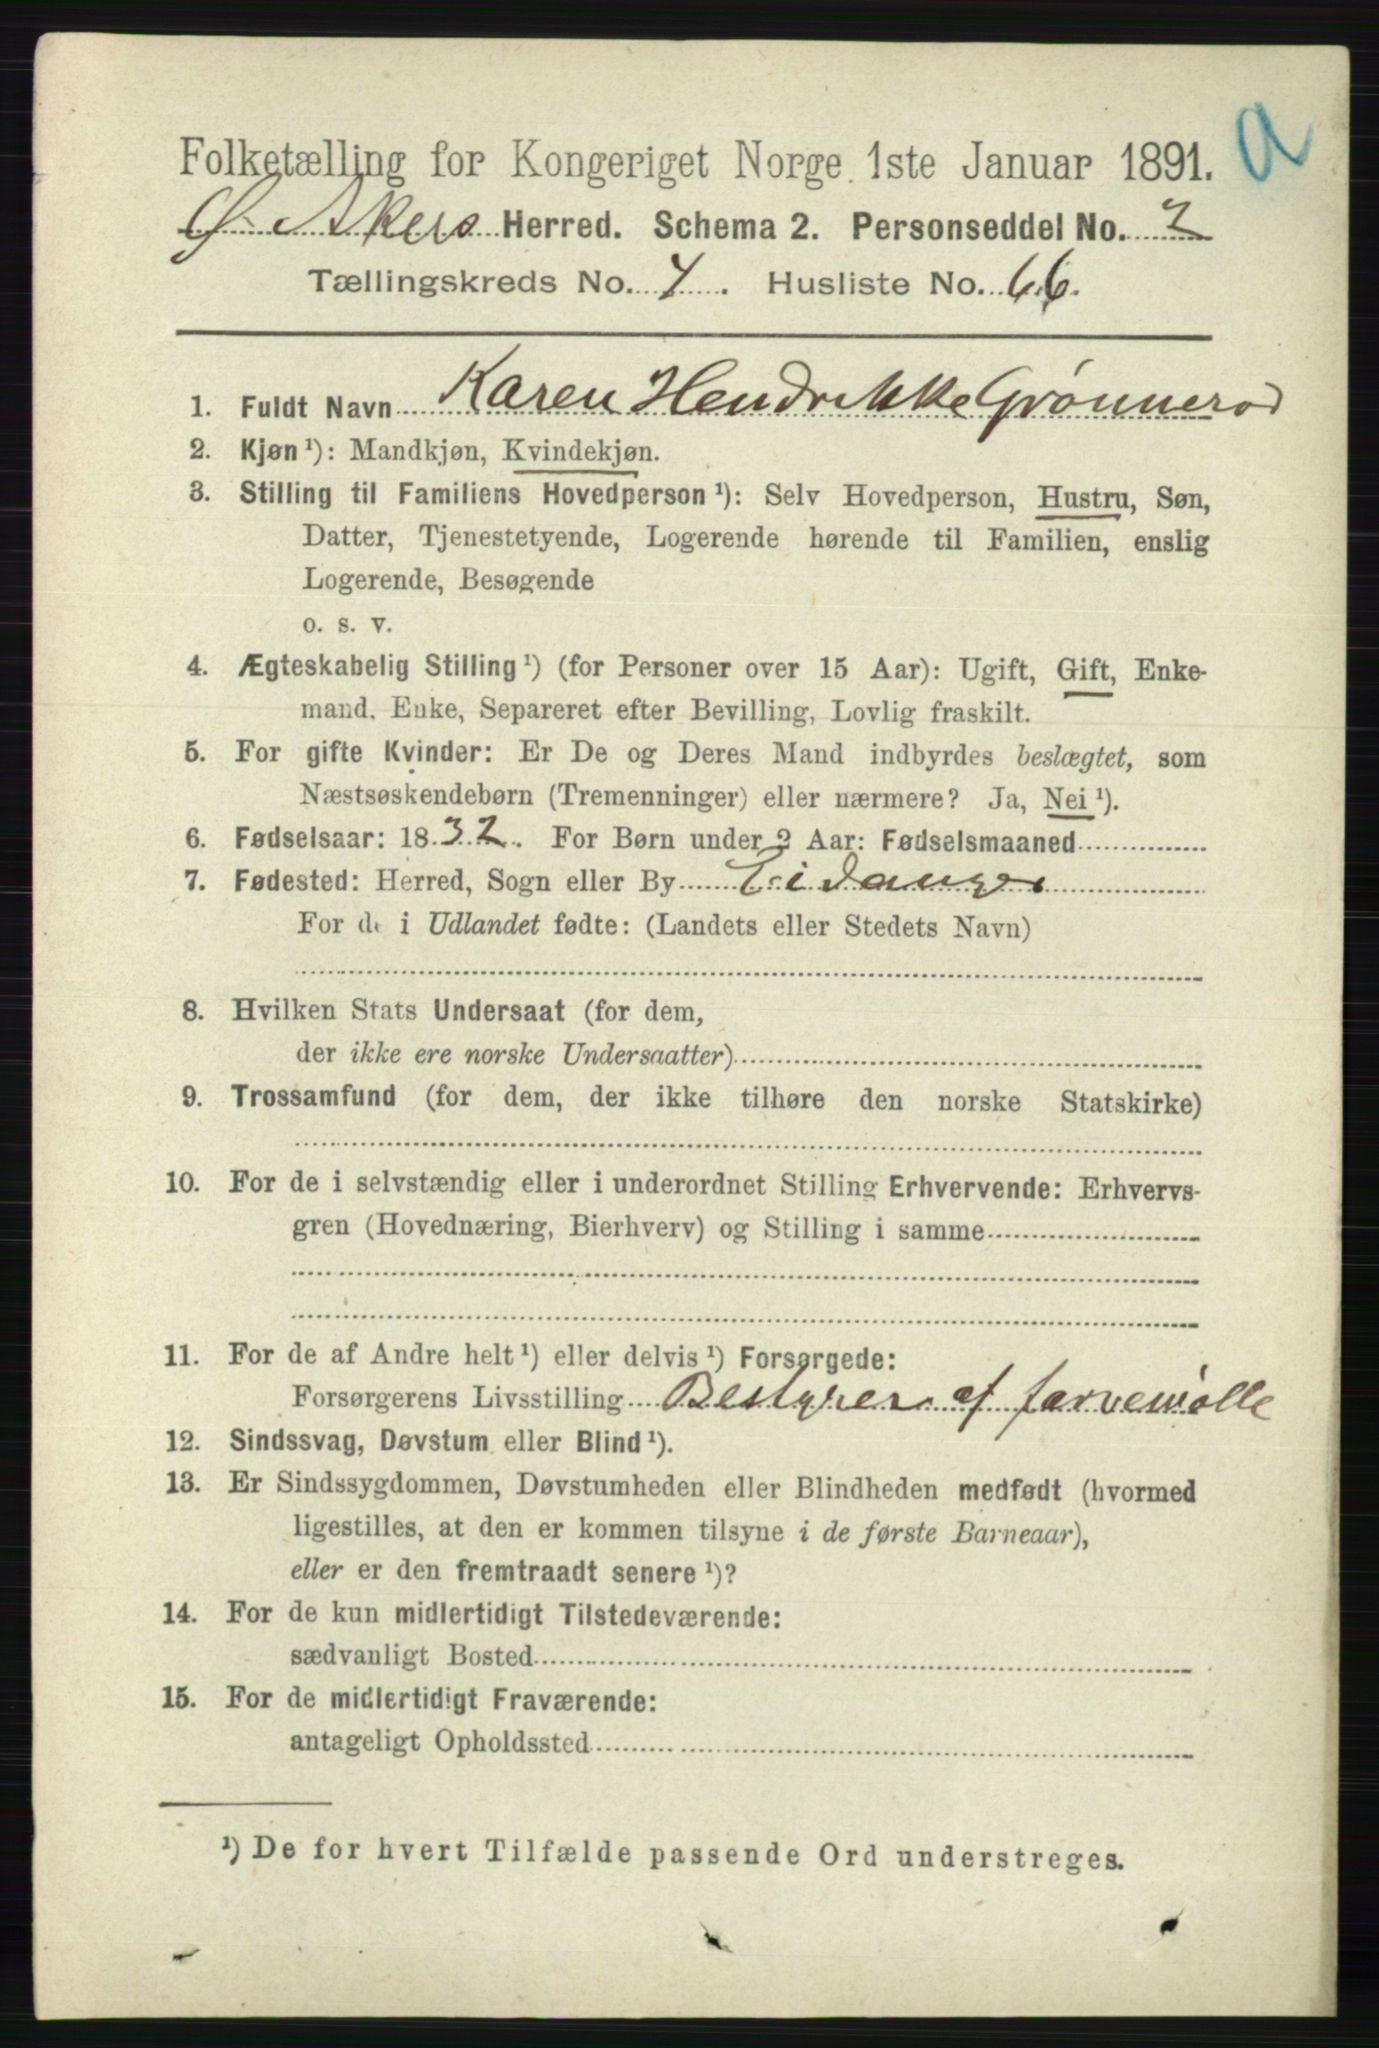 a
Folketælling for Kongeriget Norge 1ste Januar 1891.
Ø. Akers Herred. Schema 2. Personseddel No. 2
Tællingskreds No. 7. Husliste No. 66.
1. Fuldt Navn Karen Hendrikke Grønnerød
2. Kjøn ¹): Mandkjøn, Kvindekjøn.
3. Stilling til Familiens Hovedperson ¹): Selv Hovedperson, Hustru, Søn,
Datter, Tjenestetyende, Logerende hørende til Familien, enslig
Logerende, Besøgende
o. s. v.
4. Ægteskabelig Stilling ¹) (for Personer over 15 Aar): Ugift, Gift, Enke-
mand, Enke, Separeret efter Bevilling, Lovlig fraskilt.
5. For gifte Kvinder: Er De og Deres Mand indbyrdes beslægtet, som
Næstsøskendebørn (Tremenninger) eller nærmere? Ja, Nei ¹).
6. Fødselsaar: 1832. For Børn under 2 Aar: Fødselsmaaned
7. Fødested: Herred, Sogn eller By Eidanger
For de i Udlandet fødte: (Landets eller Stedets Navn)
8. Hvilken Stats Undersaat (for dem,
der ikke ere norske Undersaatter)
9. Trossamfund (for dem, der ikke tilhøre den norske Statskirke)
10. For de i selvstændig eller i underordnet Stilling Erhvervende: Erhvervs-
gren (Hovednæring, Bierhverv) og Stilling i samme
11. For de af Andre helt ¹) eller delvis ¹) Forsørgede:
Forsørgerens Livsstilling Bestyrer af farvemølle
12. Sindssvag, Døvstum eller Blind ¹).
13. Er Sindssygdommen, Døvstumheden eller Blindheden medfødt (hvormed
ligestilles, at den er kommen tilsyne i de første Barneaar),
eller er den fremtraadt senere ¹)?
14. For de kun midlertidigt Tilstedeværende:
sædvanligt Bosted
15. For de midlertidigt Fraværende:
antageligt Opholdssted
¹) De for hvert Tilfælde passende Ord understreges.